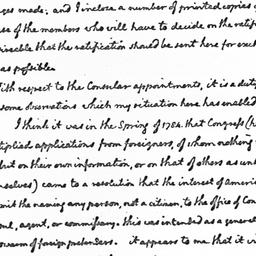 ges made; and I inclose a number of printed copies
use of the members who will have to decide on the ratifi
sireable that the ratification should be sent here for exch
as possible.
With respect to the Consular appointments, it is a duty
some observations which my situation here has enabled
I think it was in the Spring of 1784. that Congress (h
tiplied applications from foreigners, of whom nothing
but on their own information, or on that of others as unk
mselves) came to a resolution that the interest of Americ
mit the naming any person, not a citizen, to the office of Con
sul, agent, or commissary. this was intended as a general
swer of foreign pretenders. it appears to me that it wi